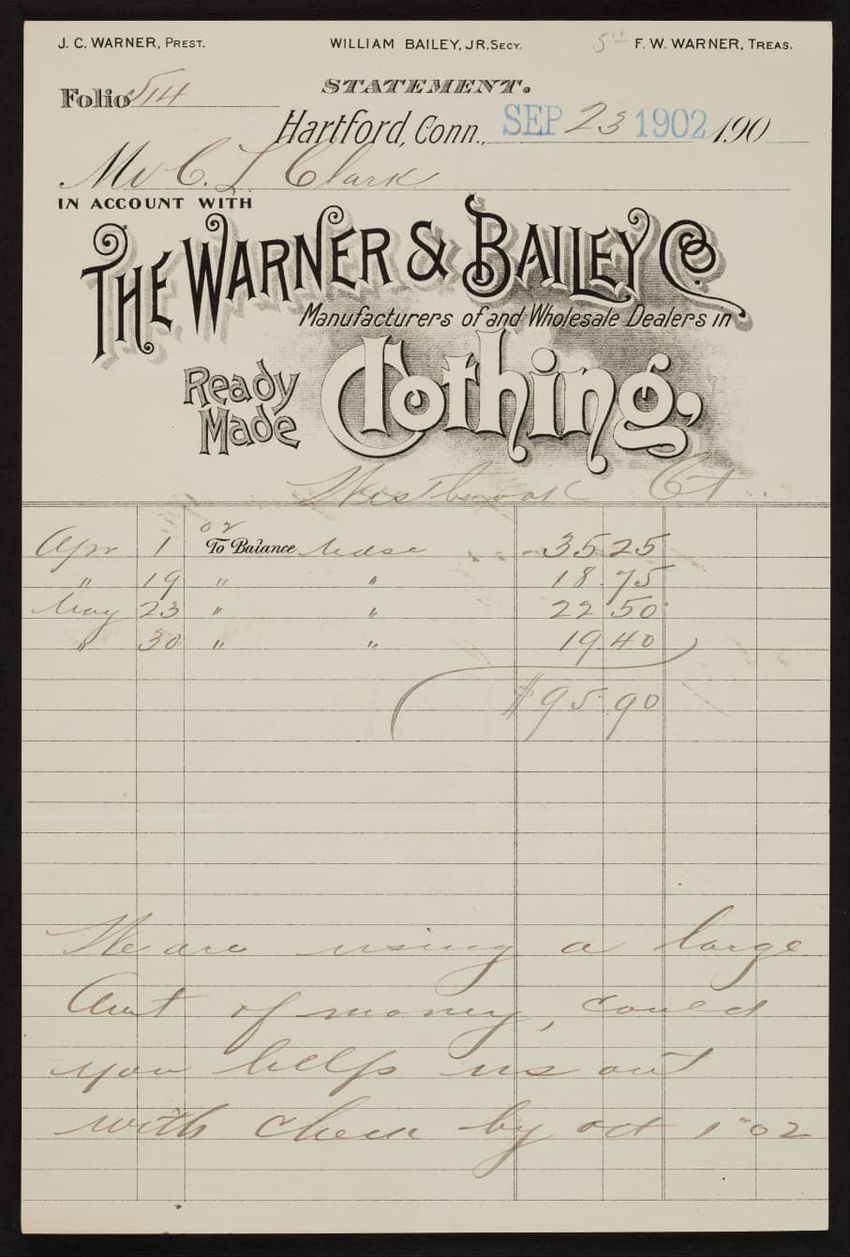 J. C. WARNER, PREST. WILLIAM BAILEY, JR. SECY. 5" F. W. WARNER, TREAS.
STATEMENT.
Folio 514
Hartford, Conn., SEP 23 1902 190
Mr C. L. Clark
IN ACCOUNT WITH
THE WARNER & BAILEY CO.
Manufacturers of and Wholesale Dealers in
Ready Made Clothing,
Westbrook Ct.
Apr 1 To Balance Mdse 35 25
" 19 " " 18.75
May 23 " " 22.50
" 30 " " 19.40
$95.90
We are using a large
Amt of money, could
you help us out
with check by oct 1" 02